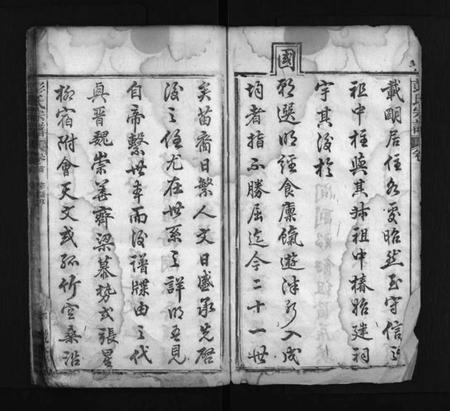 載明居住各受昭然至守信之
祖中柱與其㐲祖中椿貽建祠
宇其後於
國
朝選明經食廩餼遊泮水入成
均者指不勝屈迄今二十一世
矣苗裔日繁人文日盛承先啟
後之任尤在世系之詳明吾見
自帝繫世本而後譜牒由之代
興晉魏崇善齊梁慕勢或張星
柳宿附會天文或孤竹空桑沿